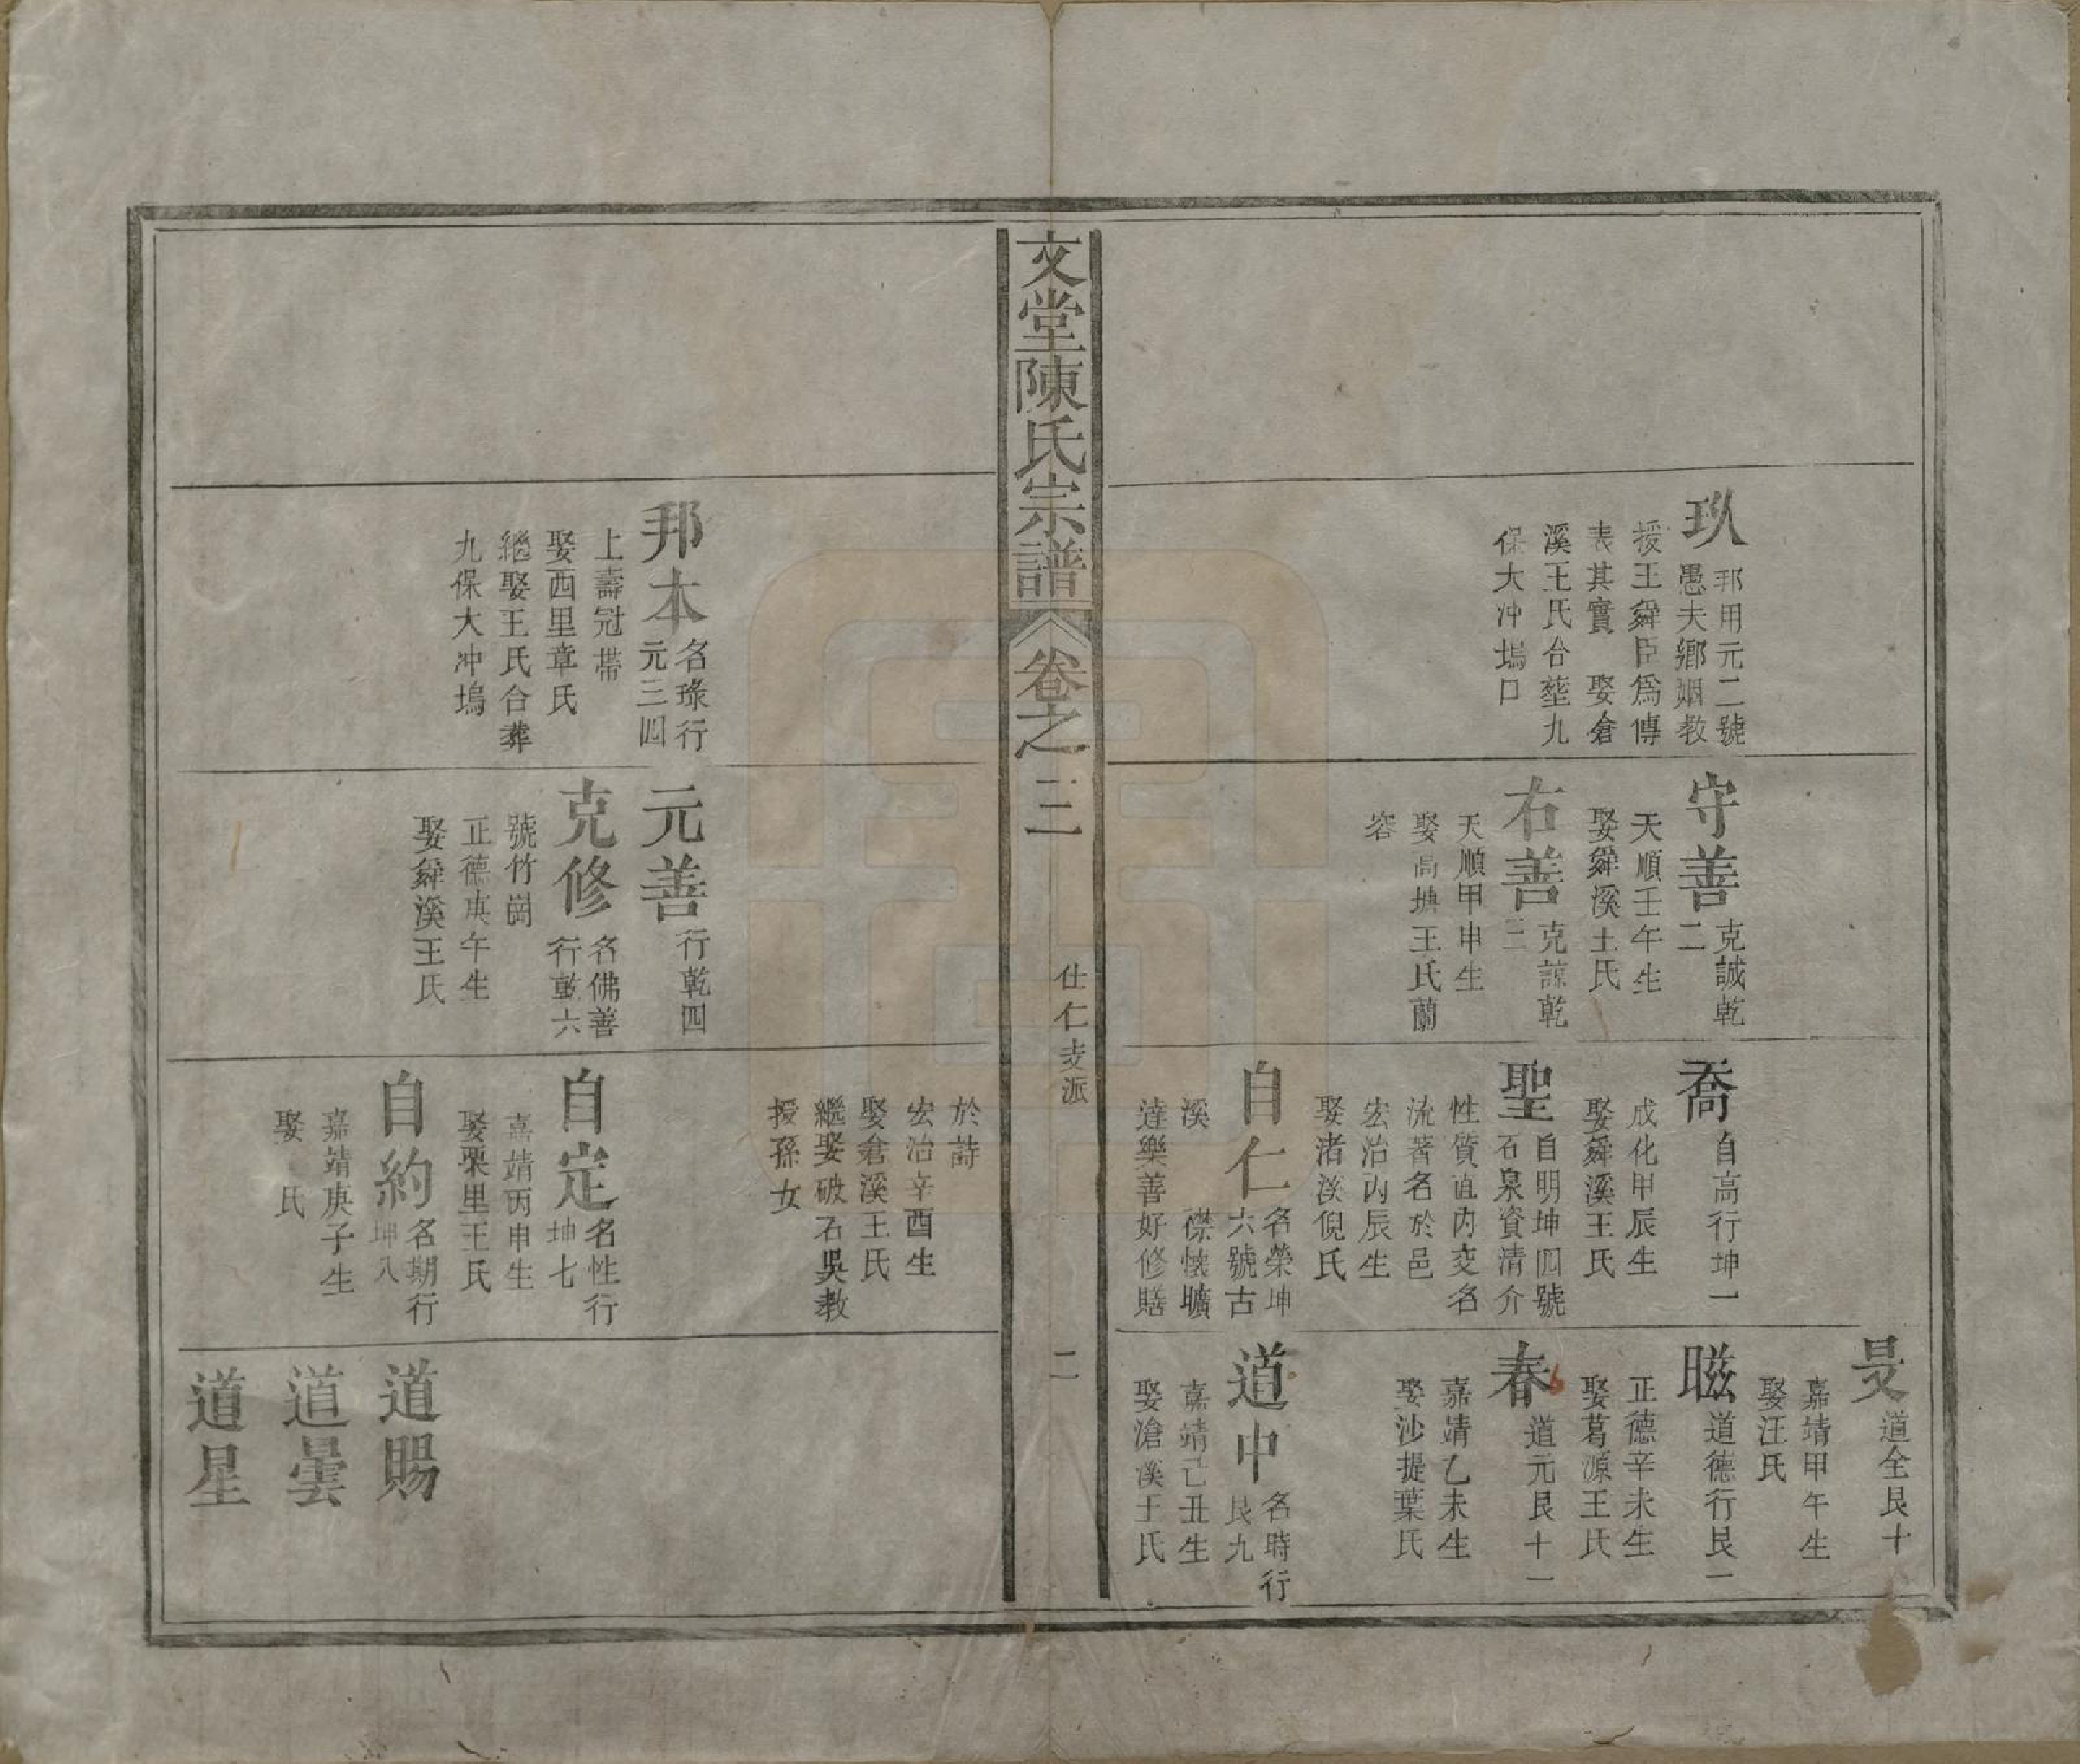 玖
邦用元二號
愚夫鄉姻教
授王舜臣爲傳
表其實 娶倉
溪王氏合塟九
保大冲塢口
守善
克誠乾
二
天順壬午生
娶舜溪王氏
右善
克諒乾
三
天順甲申生
娶高塘王氏蘭
容
喬
自高行坤一
成化甲辰生
娶舜溪王氏
聖
自明坤四號
石泉資清介
性質直內交名
流著名於邑
宏治丙辰生
娶渚溪倪氏
自仁
名榮坤
六號古
溪 襟懷曠
達樂善好修賸
旻
道全艮十
嘉靖甲午生
娶汪氏
䁅
道德行艮一
正德辛未生
娶葛源王氏
春
道元艮十一
嘉靖乙未生
娶沙提葉氏
道中
名時行
艮九
嘉靖己丑生
娶滄溪王氏
文堂陳氏宗譜
卷之三
仕仁支派
二
邦本
名琭行
元三四
上壽冠帶
娶西里章氏
繼娶王氏合葬
九保大冲塢
元善
行乾四
克修
名佛善
行乾六
號竹崗
正德庚午生
娶舜溪王氏
於詩
宏治辛酉生
娶倉溪王氏
繼娶破石吳教
授孫女
自定
名性行
坤七
嘉靖丙申生
娶栗里王氏
自約
名期行
坤八
嘉靖庚子生
娶 氏
道賜
道曇
道星